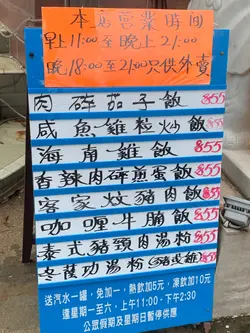 本店營業時間
早上11:00至晚上21:00
晚18:00至21:00只供外賣
肉碎茄子飯 $55
咸魚雞粒炒飯 $55
海南雞飯 $55
香辣肉碎煎蛋飯 $55
客家炆豬肉飯 $55
咖喱牛腩飯 $55
泰式豬頸肉湯粉 $55
冬蔭功湯粉(豬或雞) $55
送汽水一罐，免加一，熱飲加5元，凍飲加10元
逢星期一至六，上午11:00-下午2:30
公眾假期及星期日暫停供應